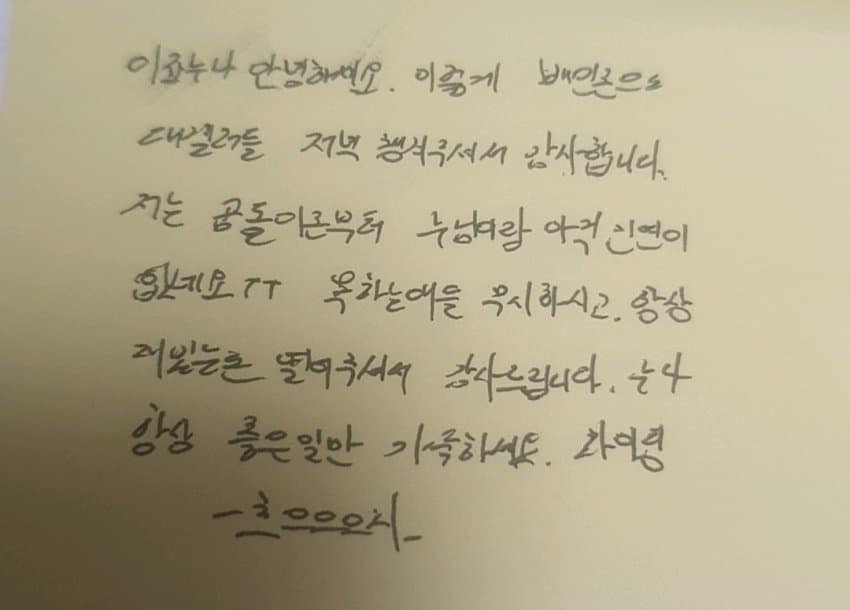 이쵸누나 안녕하세요. 이렇게 배민존으로
저녁 챙겨주셔서 감사합니다.
저는 곰돌이존부터 누님이랑 아직 인연이
없네요ㅜㅜ 욕하는애들 무시하시고. 항상
재밌는존 열어주셔서 감사드립니다. 누나
항상 좋은일만 가득하세요. 화이팅